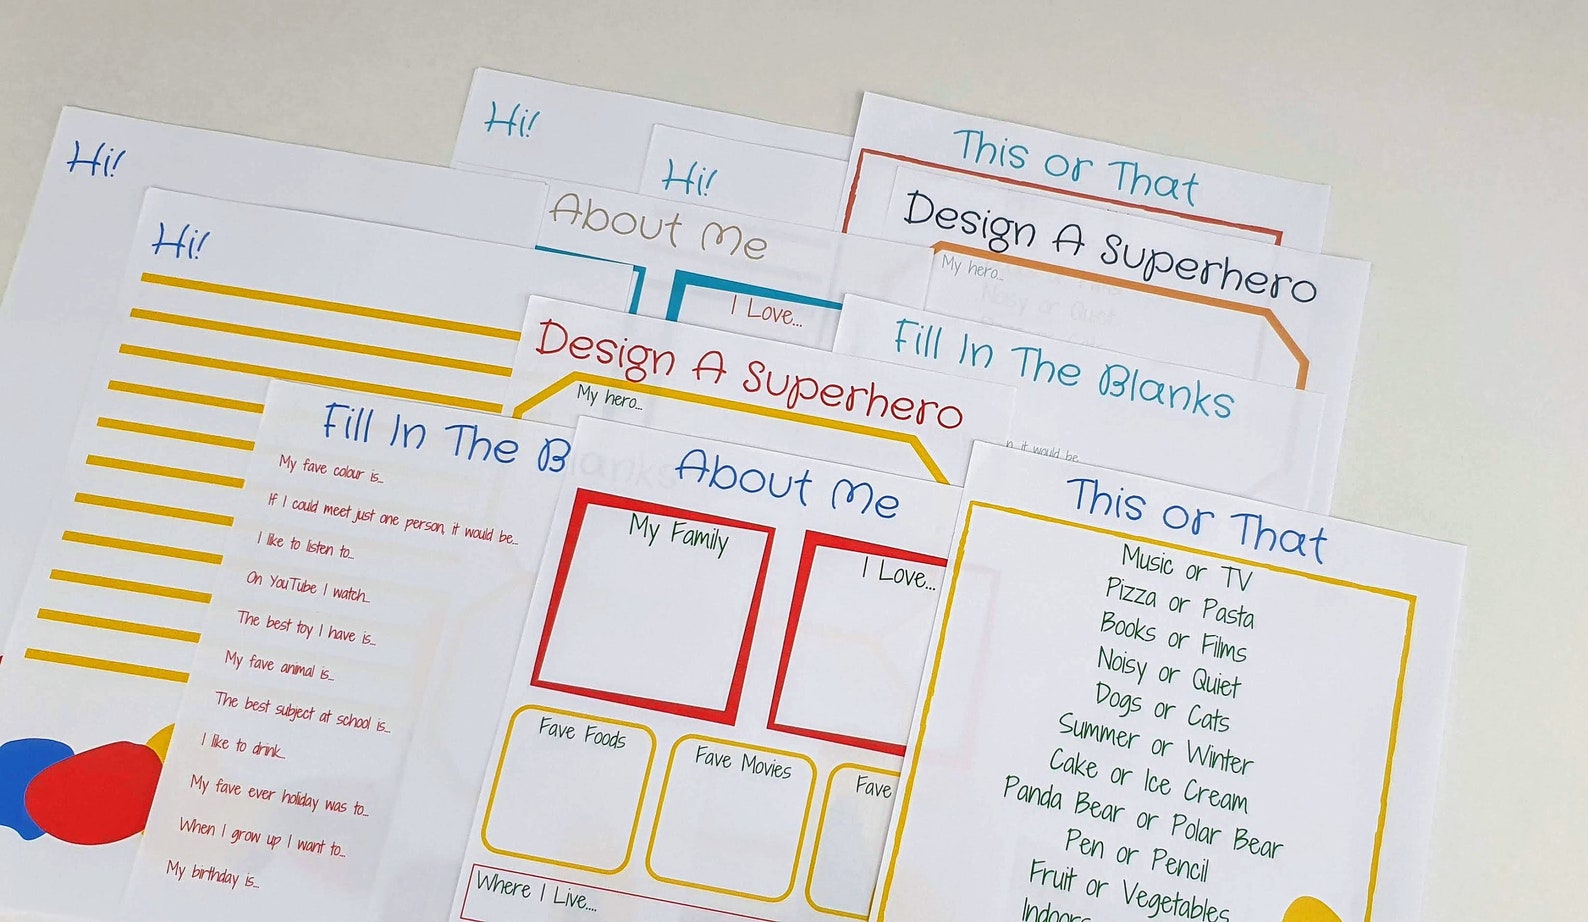 Hi!
Hi!
Hi!
Hi!
This or That
About Me
I Love...
Design A Superhero
My hero...
Noisy or Quiet
Fill In The Blanks
n, it would be
Design A Superhero
My hero...
Fill In The B
My fave colour is...
If I could meet just one person, it would be...
I like to listen to...
On YouTube I watch...
The best toy I have is...
My fave animal is...
The best subject at school is...
I like to drink...
My fave ever holiday was to...
When I grow up I want to...
My birthday is...
About Me
My Family
I Love...
Fave Foods
Fave Movies
Fave
Where I Live....
This or That
Music or TV
Pizza or Pasta
Books or Films
Noisy or Quiet
Dogs or Cats
Summer or Winter
Cake or Ice Cream
Panda Bear or Polar Bear
Pen or Pencil
Fruit or Vegetables
Indoors